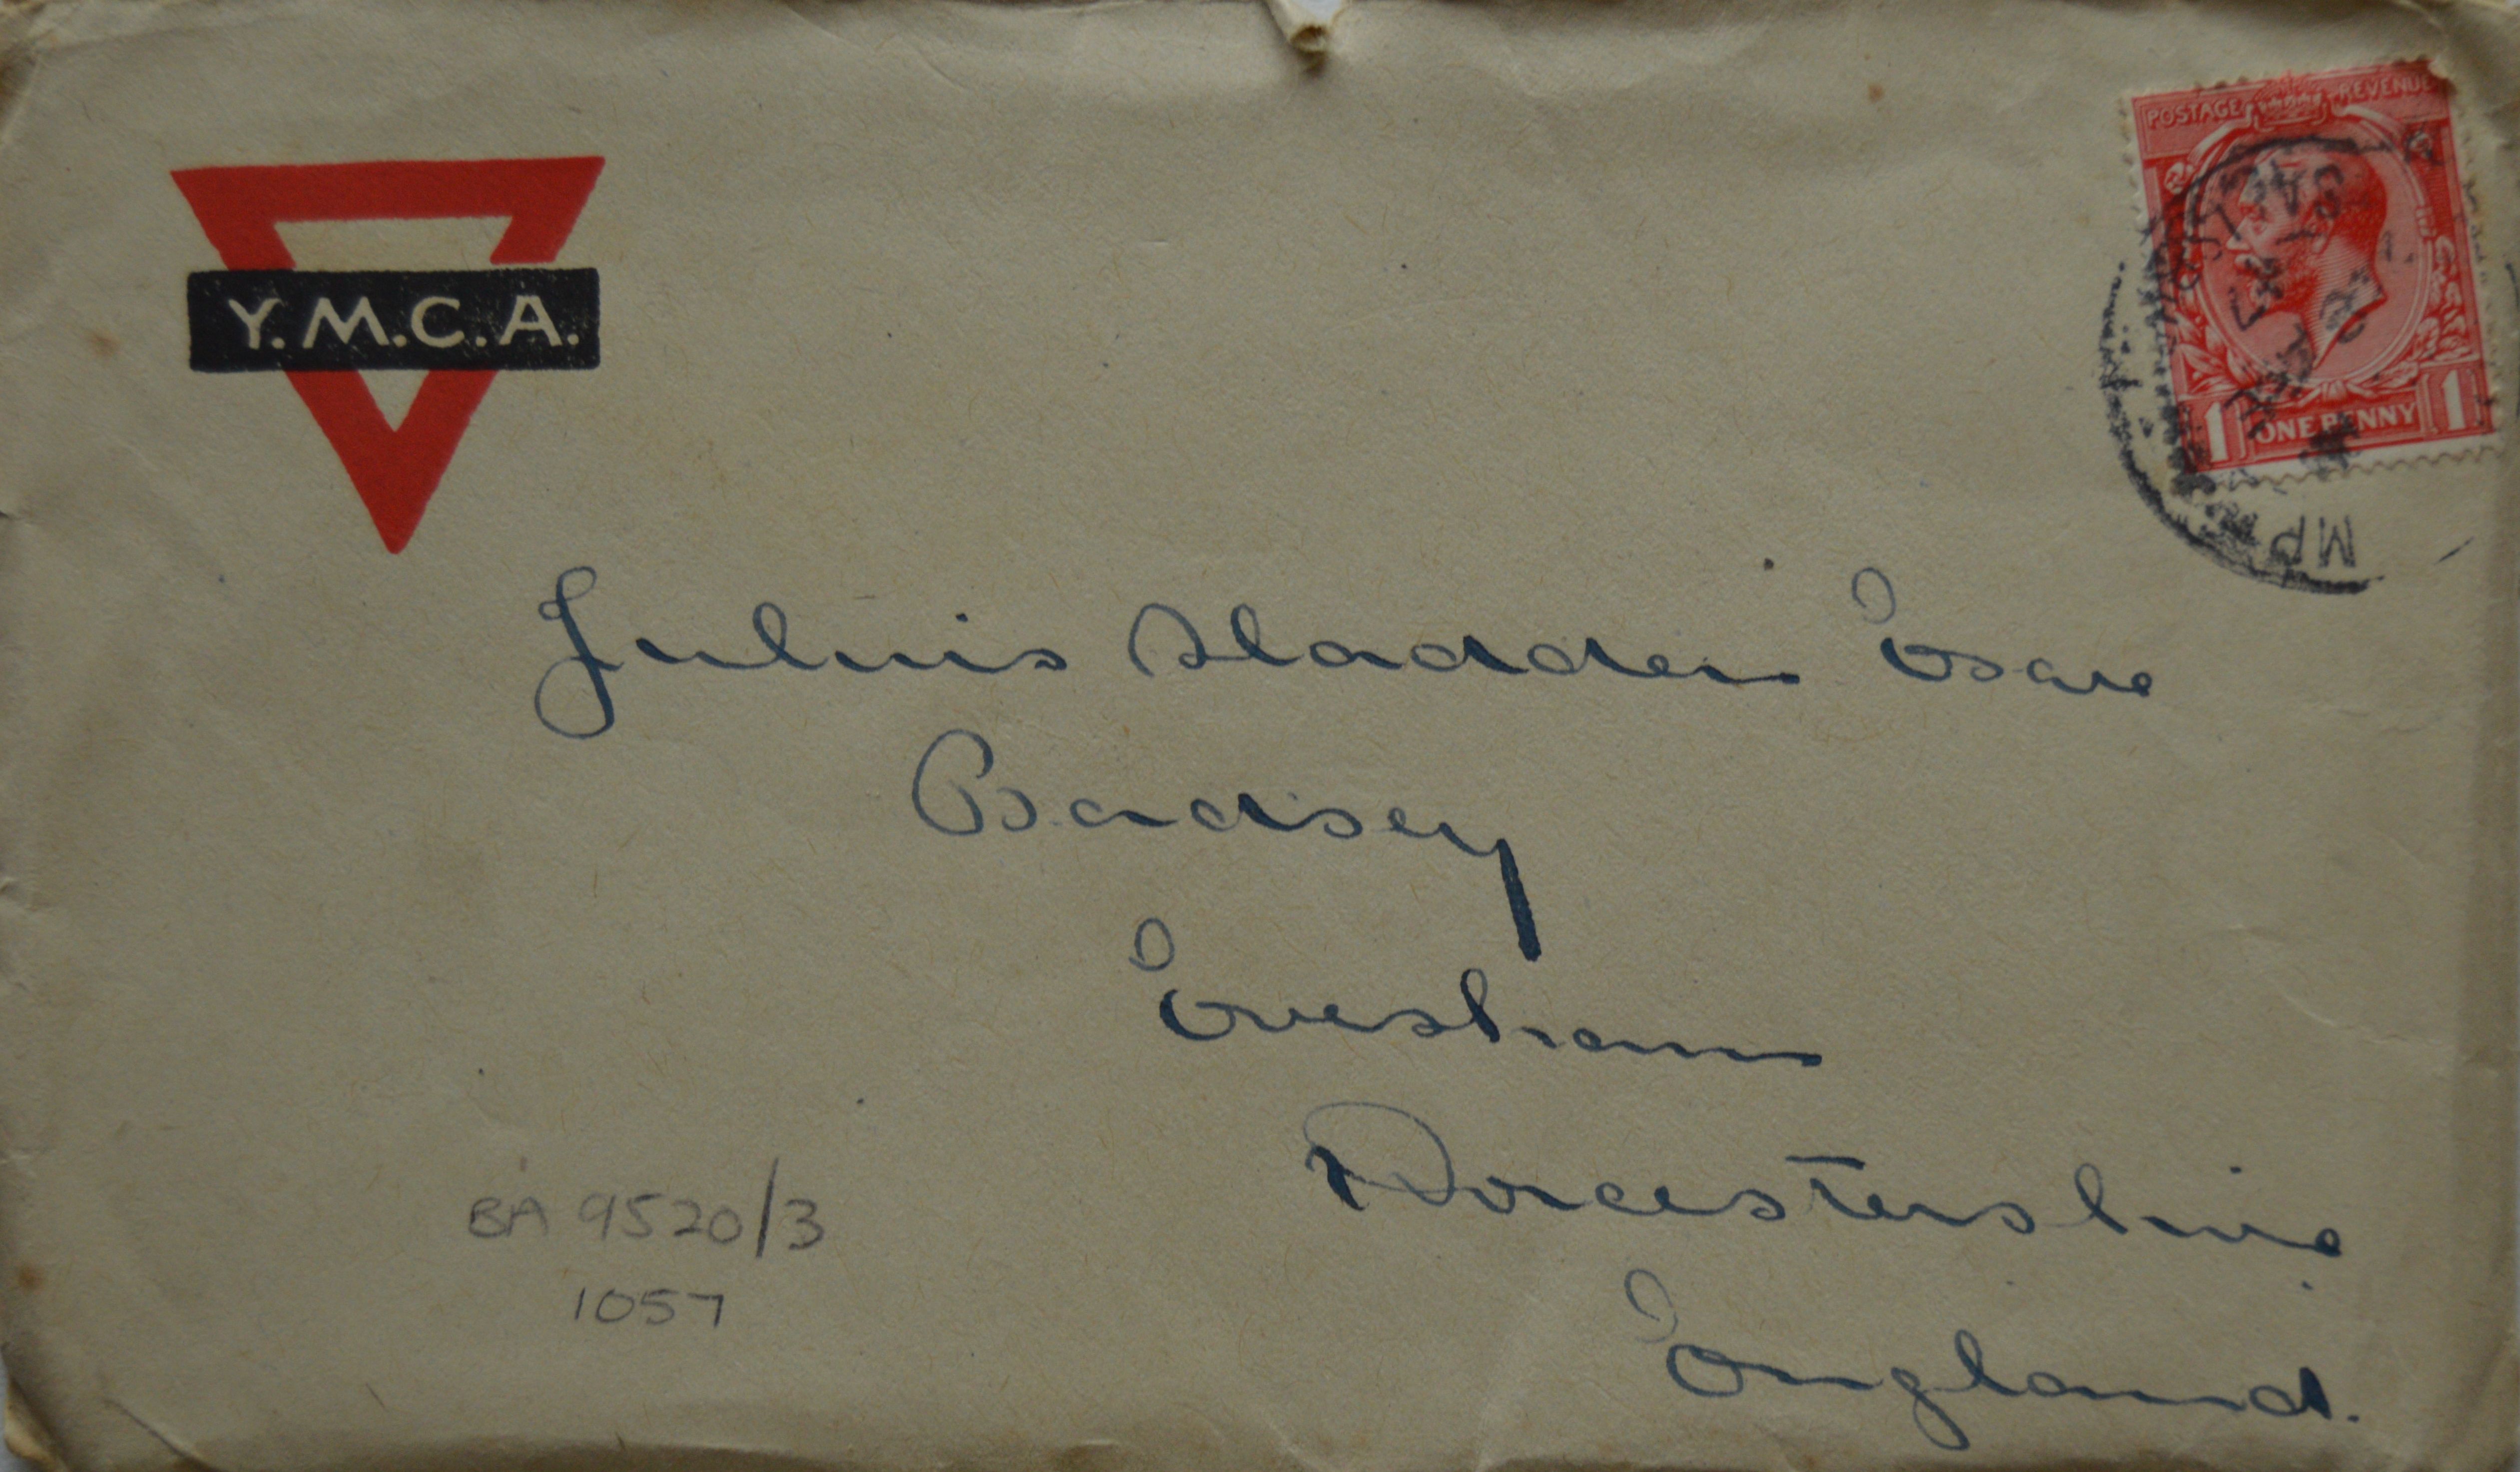 POSTAGE REVENUE
Y.M.C.A.
1 ONE PENNY 1
Julius Sladden Esqre
Badsey
Evesham
Worcestershire
England.
BA 9520/3
1057